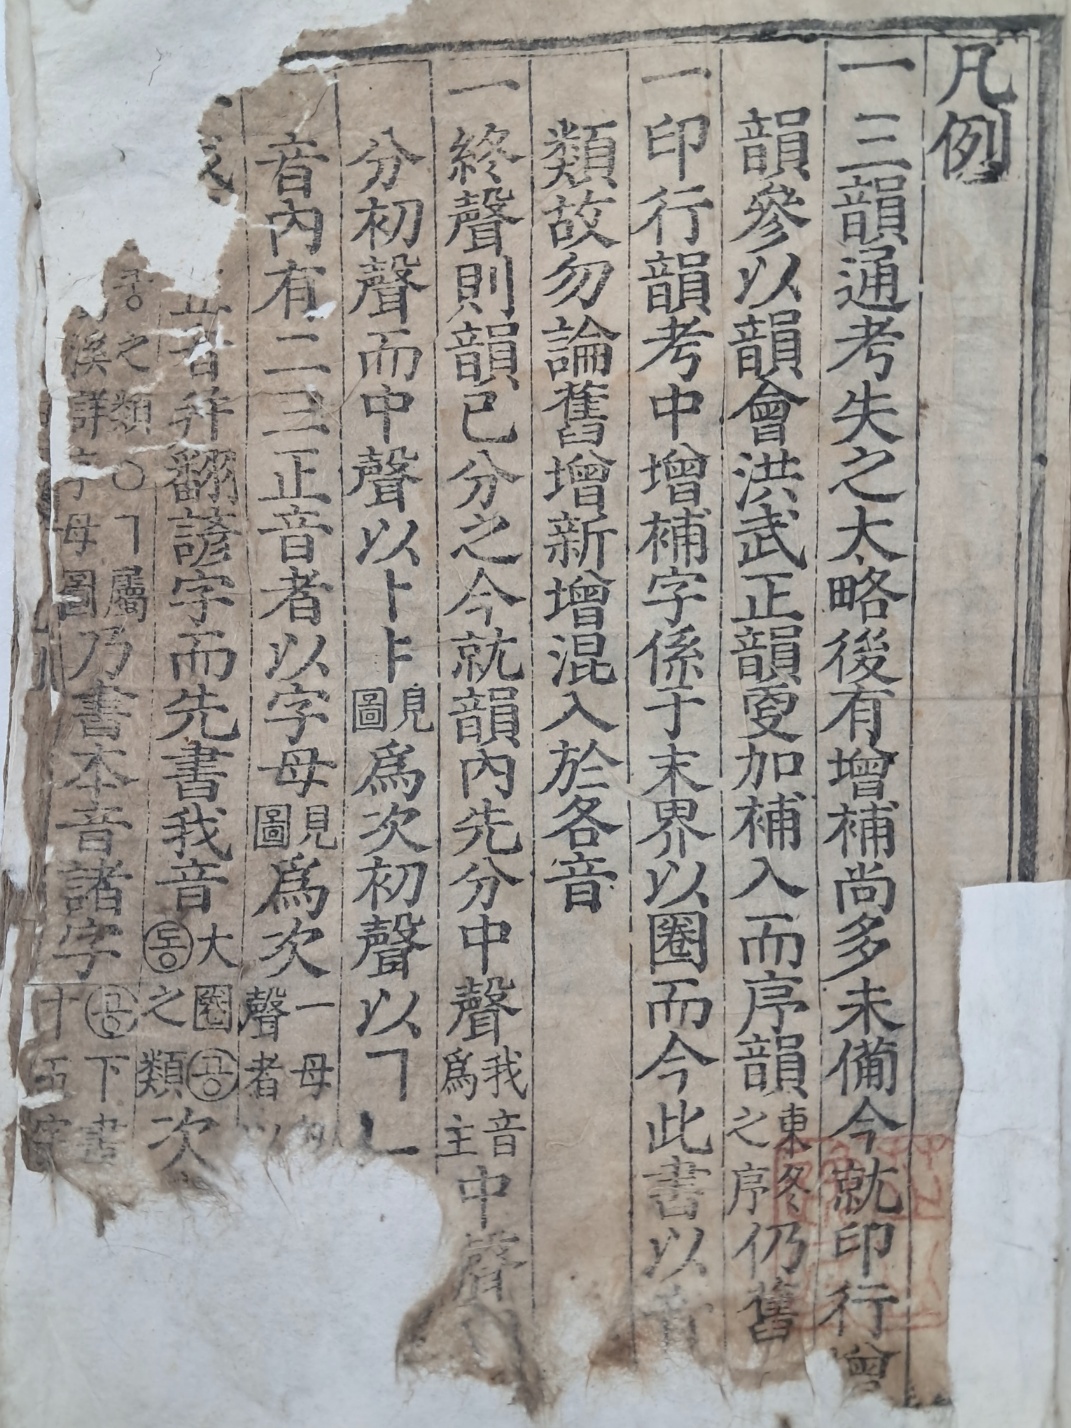 凡例
一三韻通考失之太略後有增補尚多未備今就印行增
韻參以韻會洪武正韻更加補入而序韻東冬之序仍舊
一印行韻考中增補字係于末界以圈而今此書以音
類故勿論舊增新增混入於各音
一終聲則韻已分之今就韻內先分中聲我音爲主中聲
分初聲而中聲以ㅏㅑ見圖爲次初聲以ㄱㄴ
音內有二三正音者以字母見圖爲次一母聲者以
正音幷翻諺字而先書我音大圈공동之類次
공之類○ㄱ屬溪詳字母圖乃書本音諸字공下書十五字